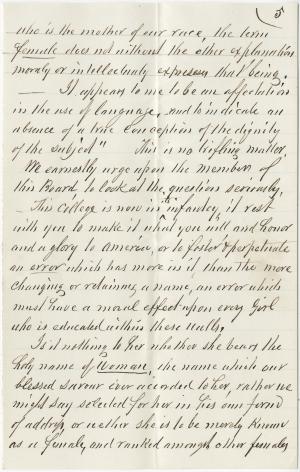 5
who is the mother of our race, the term
female does not without the other explanation
moraly or intellectualy express that being.
— It appears to me to be an affectation
in the use of language, and to indicate an
absence of a true conception of the dignity
of the subject" This is no trifling matter.
We earnestly urge upon the members of
this Board to look at the question seriously.
— This College is now in its infantcy, it rest
with you to make it what you will and honor
and a glory to America, or to foster & perpetuate
an error which has more in it, than the mere
changing or retaining a name, an error which
must have a moral effect upon every Girl
who is educated within these walls,
Is it nothing to her whether she bears the
holy name of Woman, the name which our
blessed saviour ever accorded to her, rather we
might say selected for her in his own form of
of address, or wether she is to be merely known
as a female, and ranked amongst other females